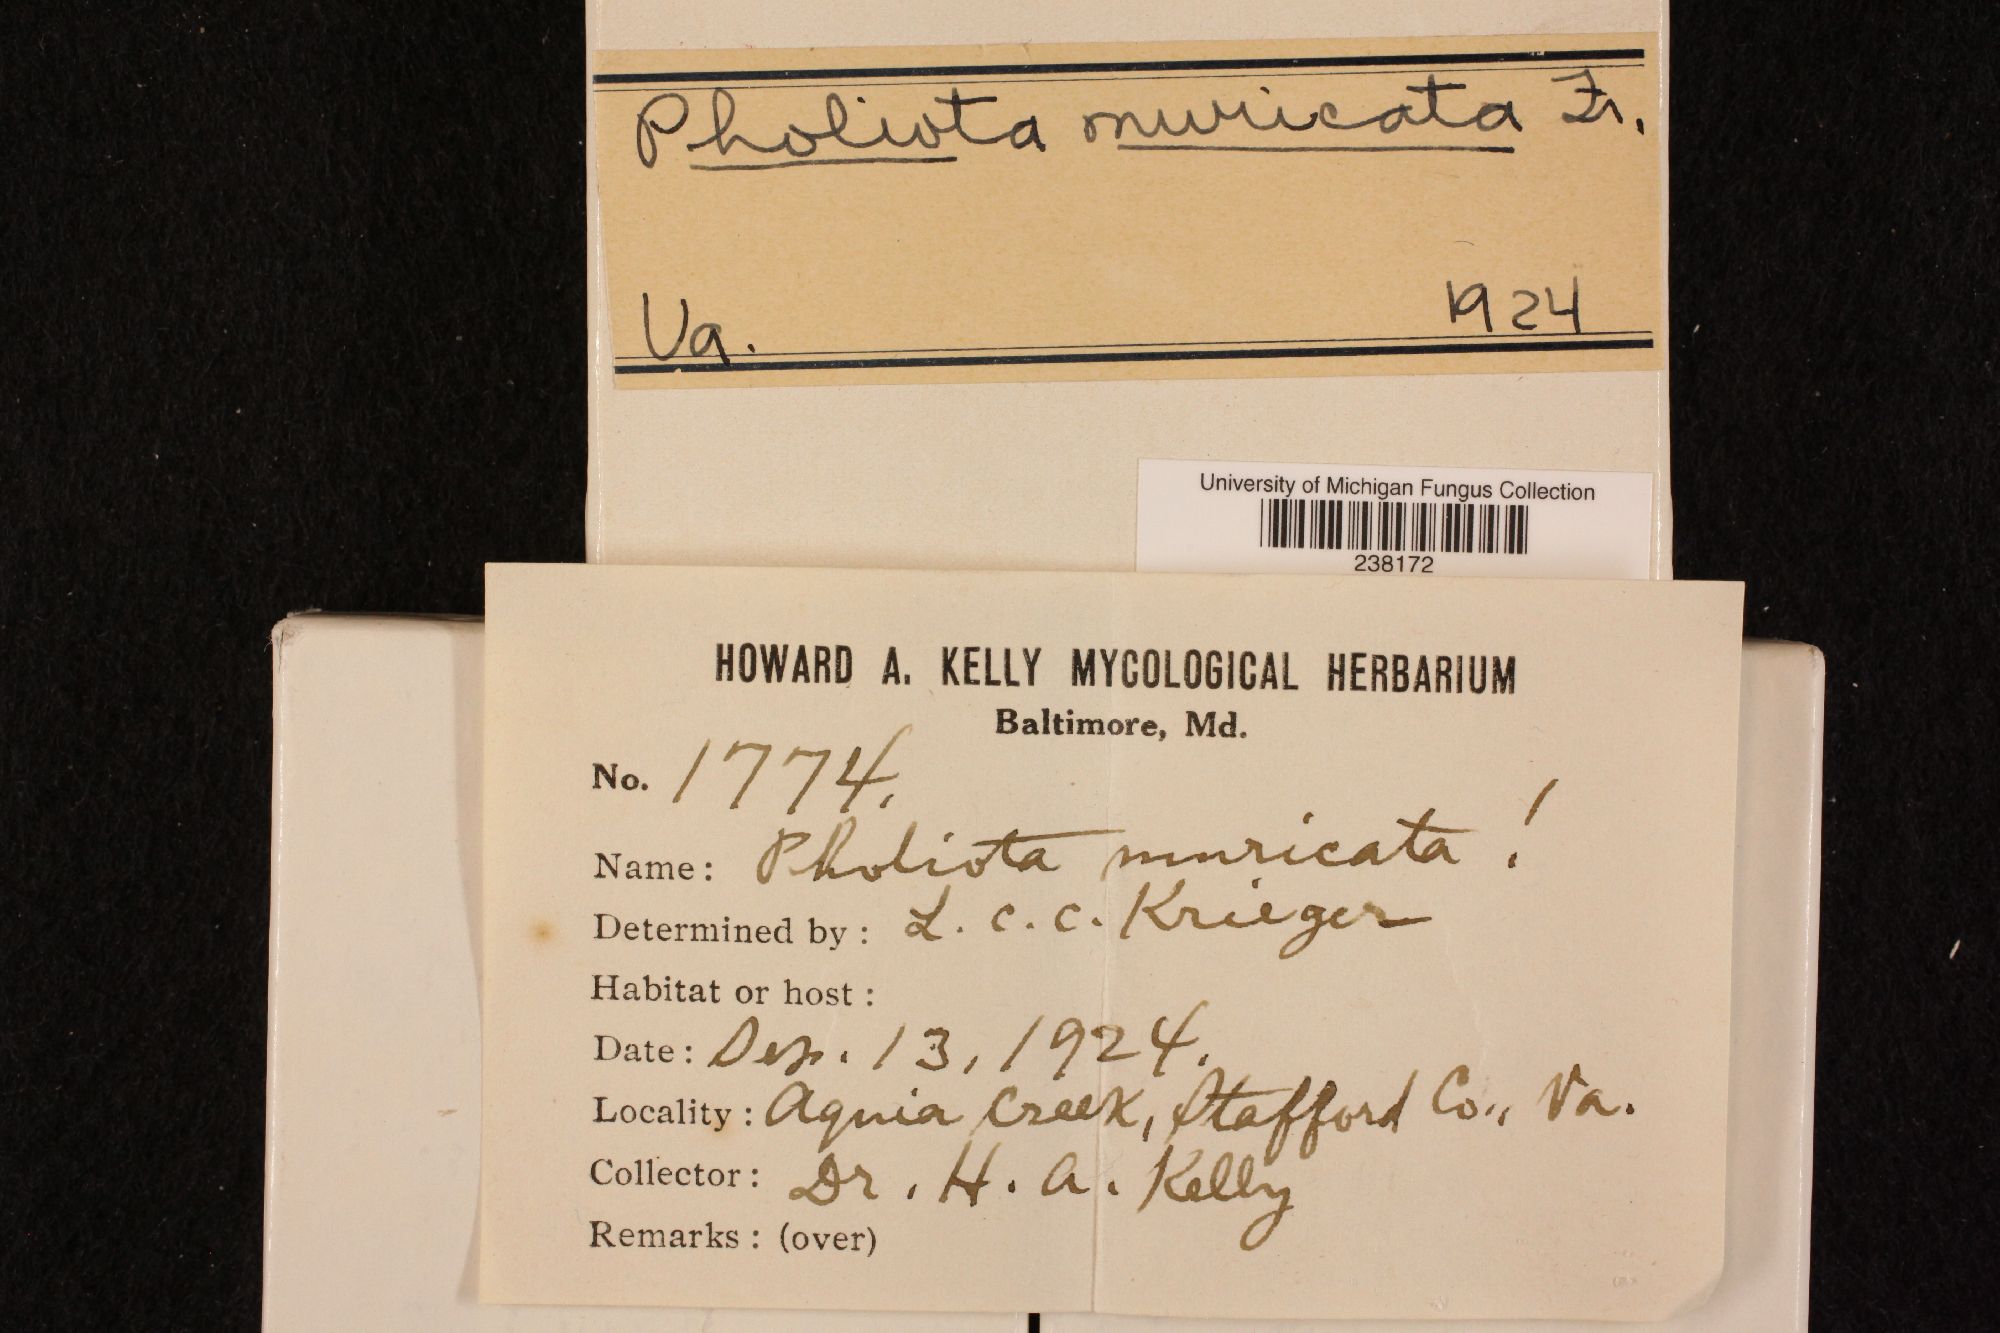 Pholiota muricata Fr.
Va. 1924
University of Michigan Fungus Collection
238172
HOWARD A. KELLY MYCOLOGICAL HERBARIUM
Baltimore, Md.
No. 1774.
Name: Pholiota muricata!
Determined by: L. C. C. Krieger
Habitat or host:
Date: Sep. 13, 1924.
Locality: Aquia Creek, Stafford Co., Va.
Collector: Dr. H. A. Kelly
Remarks: (over)